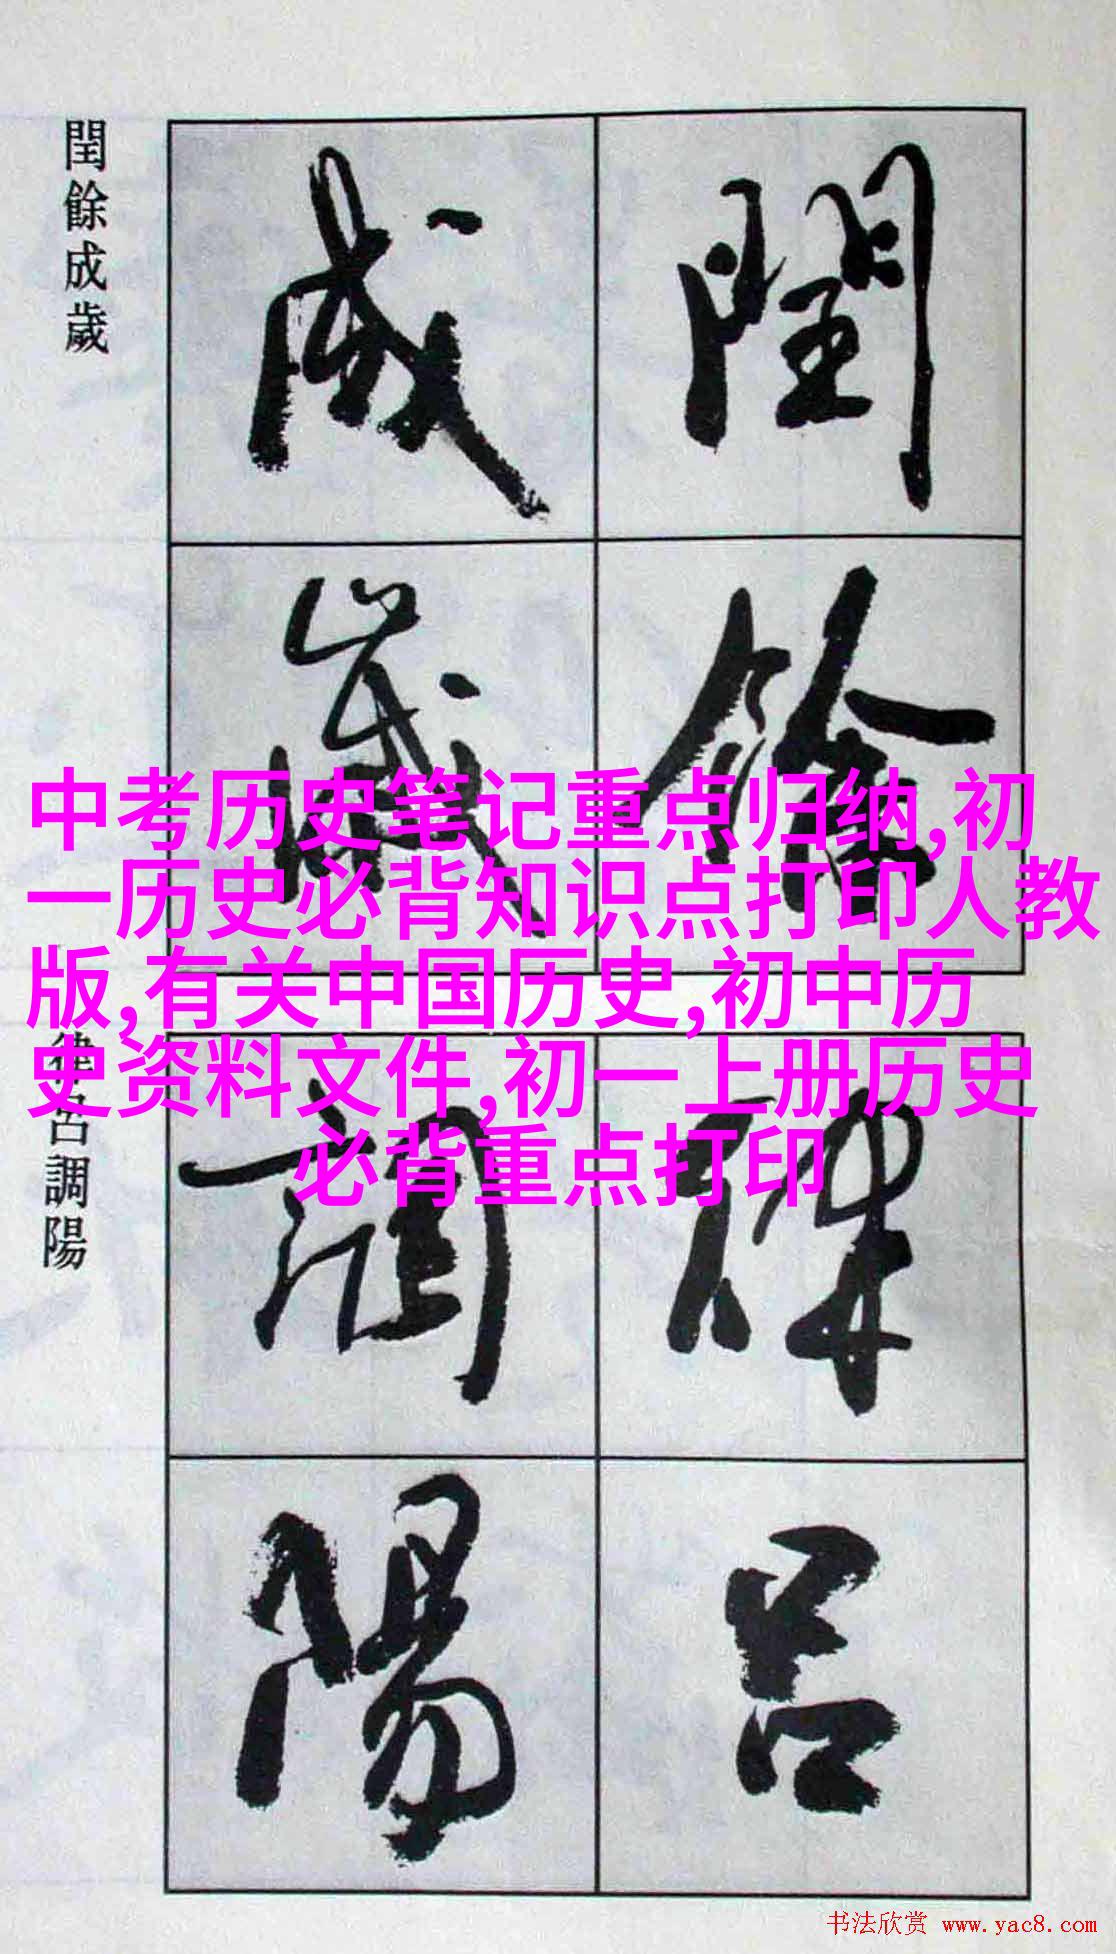 閏餘成歲
閏餘
成歲
中考历史笔记重点归纳,初
一历史必背知识点打印人教
版,有关中国历史,初中历
史资料文件,初一上册历史
必背重点打印
律呂調陽
律呂
調陽
书法欣赏 www.yac8.com